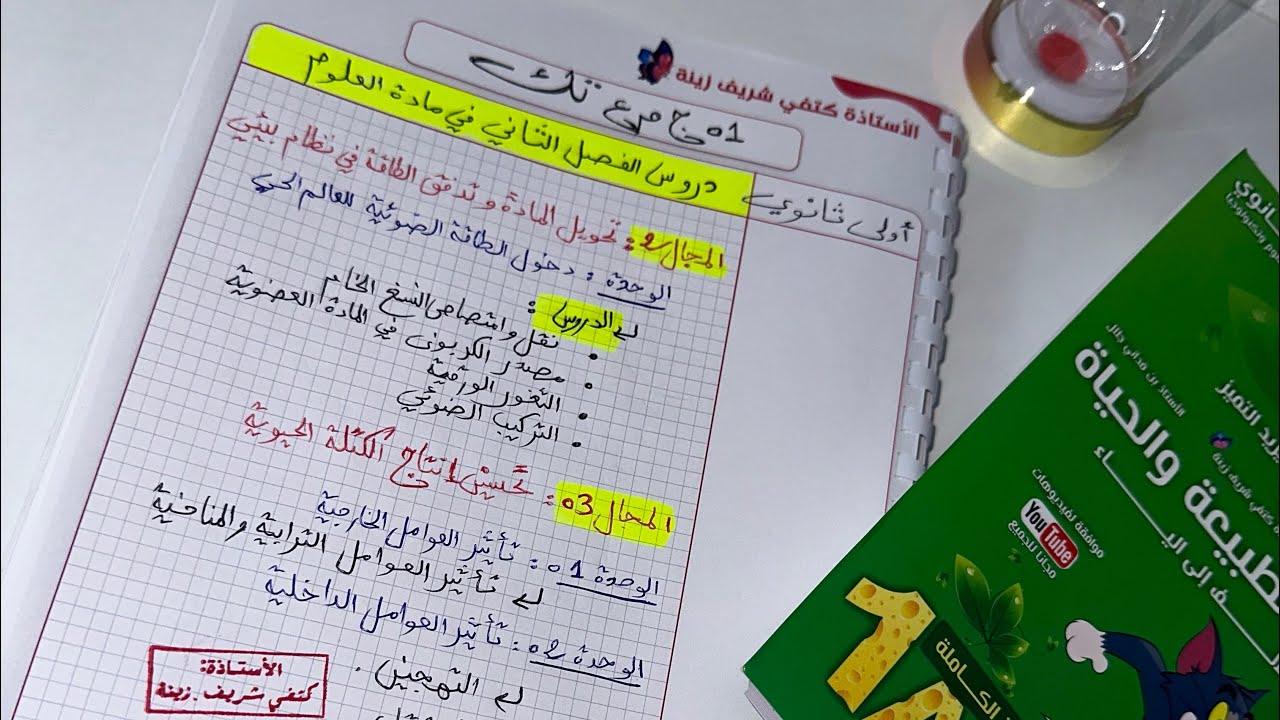 الأستاذة كتفي شريف زينة
01 ج م ع تك
أولى ثانوي
دروس الفصل الثاني في مادة العلوم
المجال 2: تحويل المادة و تدفق الطاقة في نظام بيئي
الوحدة: دخول الطاقة الضوئية للعالم الحي
الدروس:
• نقل وامتصاص النسغ الخام
• مصدر الكربون في المادة العضوية
• الثغور الورقية
• التركيب الضوئي
المجال 03: تحسين إنتاج الكتلة الحيوية
الوحدة 01: تأثير العوامل الخارجية
تأثير العوامل الترابية والمناخية
الوحدة 02: تأثير العوامل الداخلية
التهجين.
الأستاذة:
كتفي شريف.زينة
انوي
يريد التميز
كتفي شريف زينة
طبيعة والحياة
ف إلى اليـاء
موافقة لفيديوهات
YouTube
مجانا للجميع
1
الكاملة